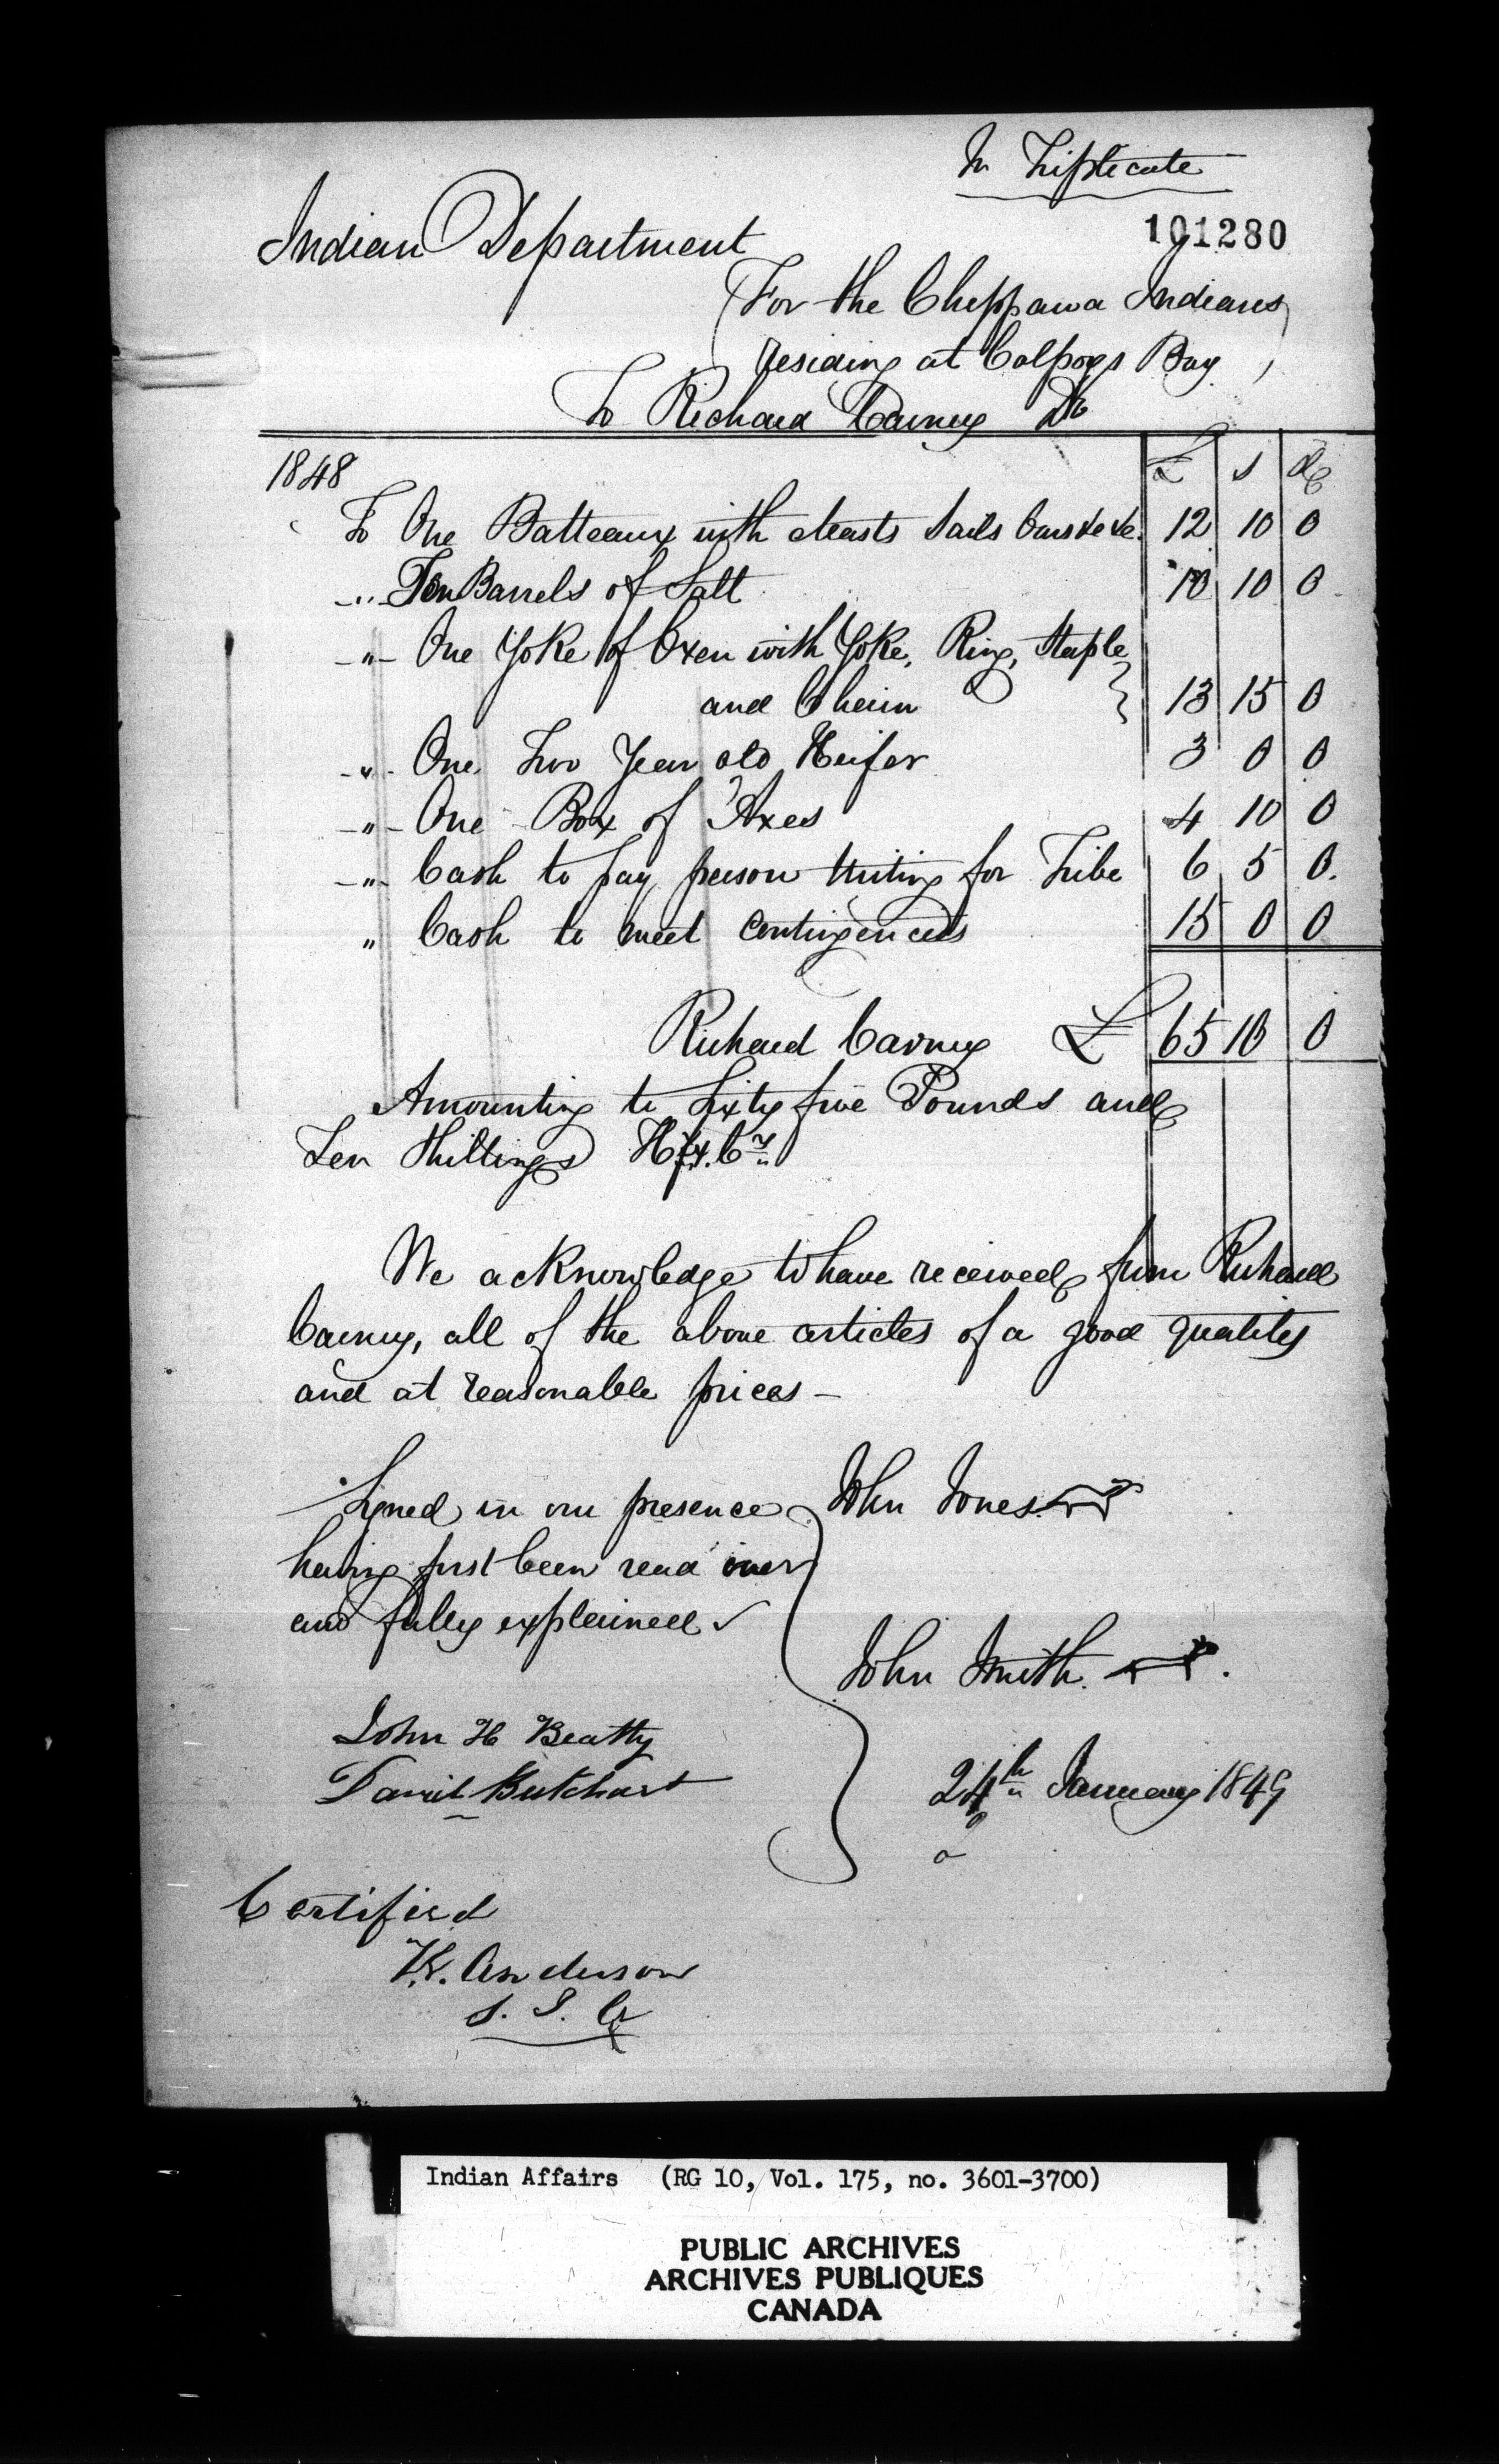 In Triplicate
101280
Indian Department
For the Chippawa Indians
residing at Colpoys Bay
To Richard Carney Dr
1848 £ s d
To One Batteaux with Masts Sails Oars &c &c 12 10 0
-"- Ten Barrels of Salt 10 10 0
-"- One Yoke of Oxen with Yoke, Ring, Staple
and Chain 13 15 0
-"- One Two Year old Heifer 3 0 0
-"- One Box of Axes 4 10 0
-"- Cash to pay person writing for Tribe 6 5 0
" Cash to meet Contingencies 15 0 0
Richard Carney £ 65 10 0
Amounting to Sixty five Pounds and
Ten Shillings Hfx. Cy
We acknowledge to have received from Richard
Carney, all of the above articles of a good quality
and at reasonable prices -
Signed in our presence
having first been read over
and fully explained
John Jones
John Smith
John H Beatty
David Butchart
24th January 1849
Certified
T.G. Anderson
S. I. A
Indian Affairs (RG 10, Vol. 175, no. 3601-3700)
PUBLIC ARCHIVES
ARCHIVES PUBLIQUES
CANADA